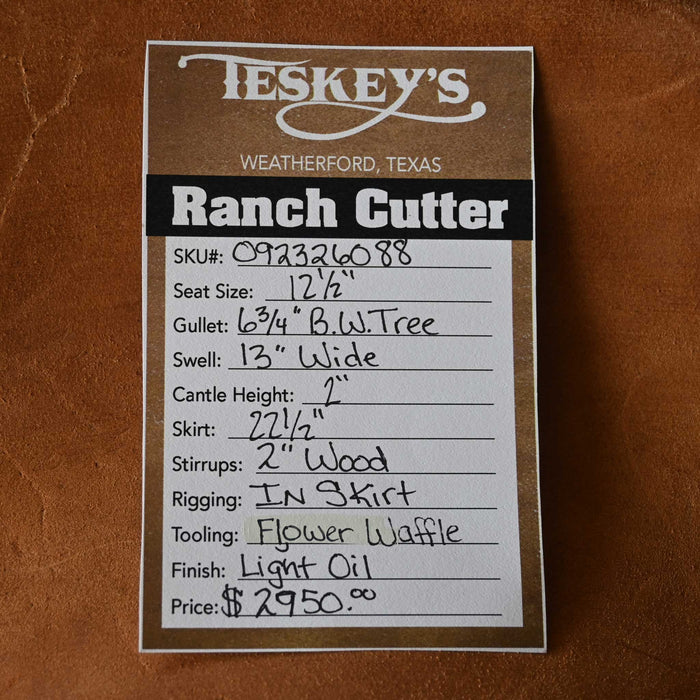 TESKEY'S
WEATHERFORD, TEXAS
Ranch Cutter
SKU#: 092326088
Seat Size: 12 1/2"
Gullet: 6 3/4" B.W. Tree
Swell: 13" Wide
Cantle Height: 2"
Skirt: 22 1/2"
Stirrups: 2" Wood
Rigging: In Skirt
Tooling: Flower Waffle
Finish: Light Oil
Price: $2950.00